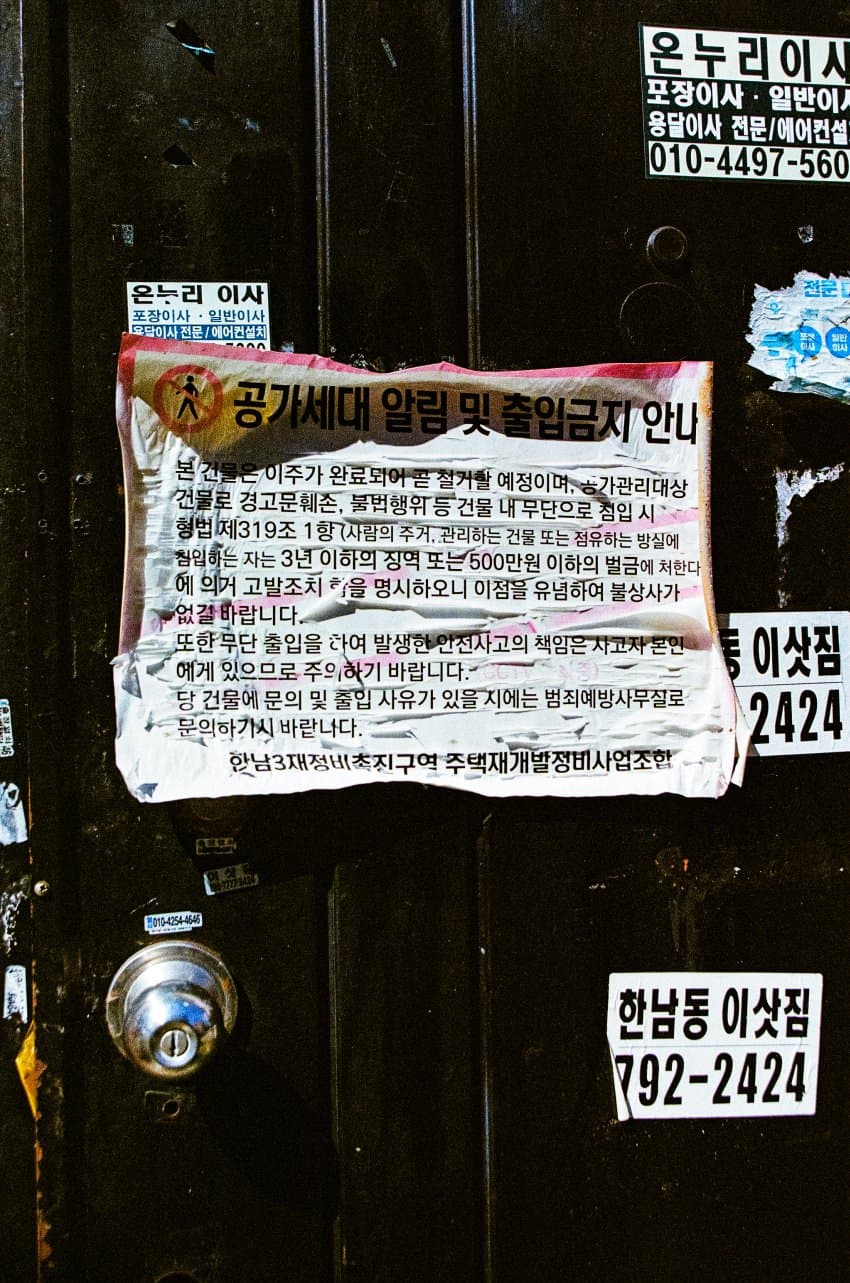 온누리이사
포장이사 · 일반이사
용달이사 전문/에어컨설
010-4497-560
온누리 이사
포장이사 · 일반이사
용달이사 전문/에어컨설치
전문
포장이사
일반이사
공가세대 알림 및 출입금지 안내
본 건물은 이주가 완료되어 곧 철거할 예정이며, 공가관리대상
건물로 경고문훼존, 불법행위 등 건물 내 무단으로 침입 시
형법 제319조 1항 (사람의 주거, 관리하는 건물 또는 점유하는 방실에
침입하는 자는 3년 이하의 징역 또는 500만원 이하의 벌금에 처한다
에 의거 고발조치 함을 명시하오니 이점을 유념하여 불상사가
없길 바랍니다.
또한 무단 출입을 하여 발생한 안전사고의 책임은 사고자 본인
에게 있으므로 주의하기 바랍니다.
당 건물에 문의 및 출입 사유가 있을 시에는 범죄예방사무실로
문의하기시 바랍니다.
한남3재정비촉진구역 주택재개발정비사업조합
동 이삿짐
2424
010-4254-4646
한남동 이삿짐
792-2424